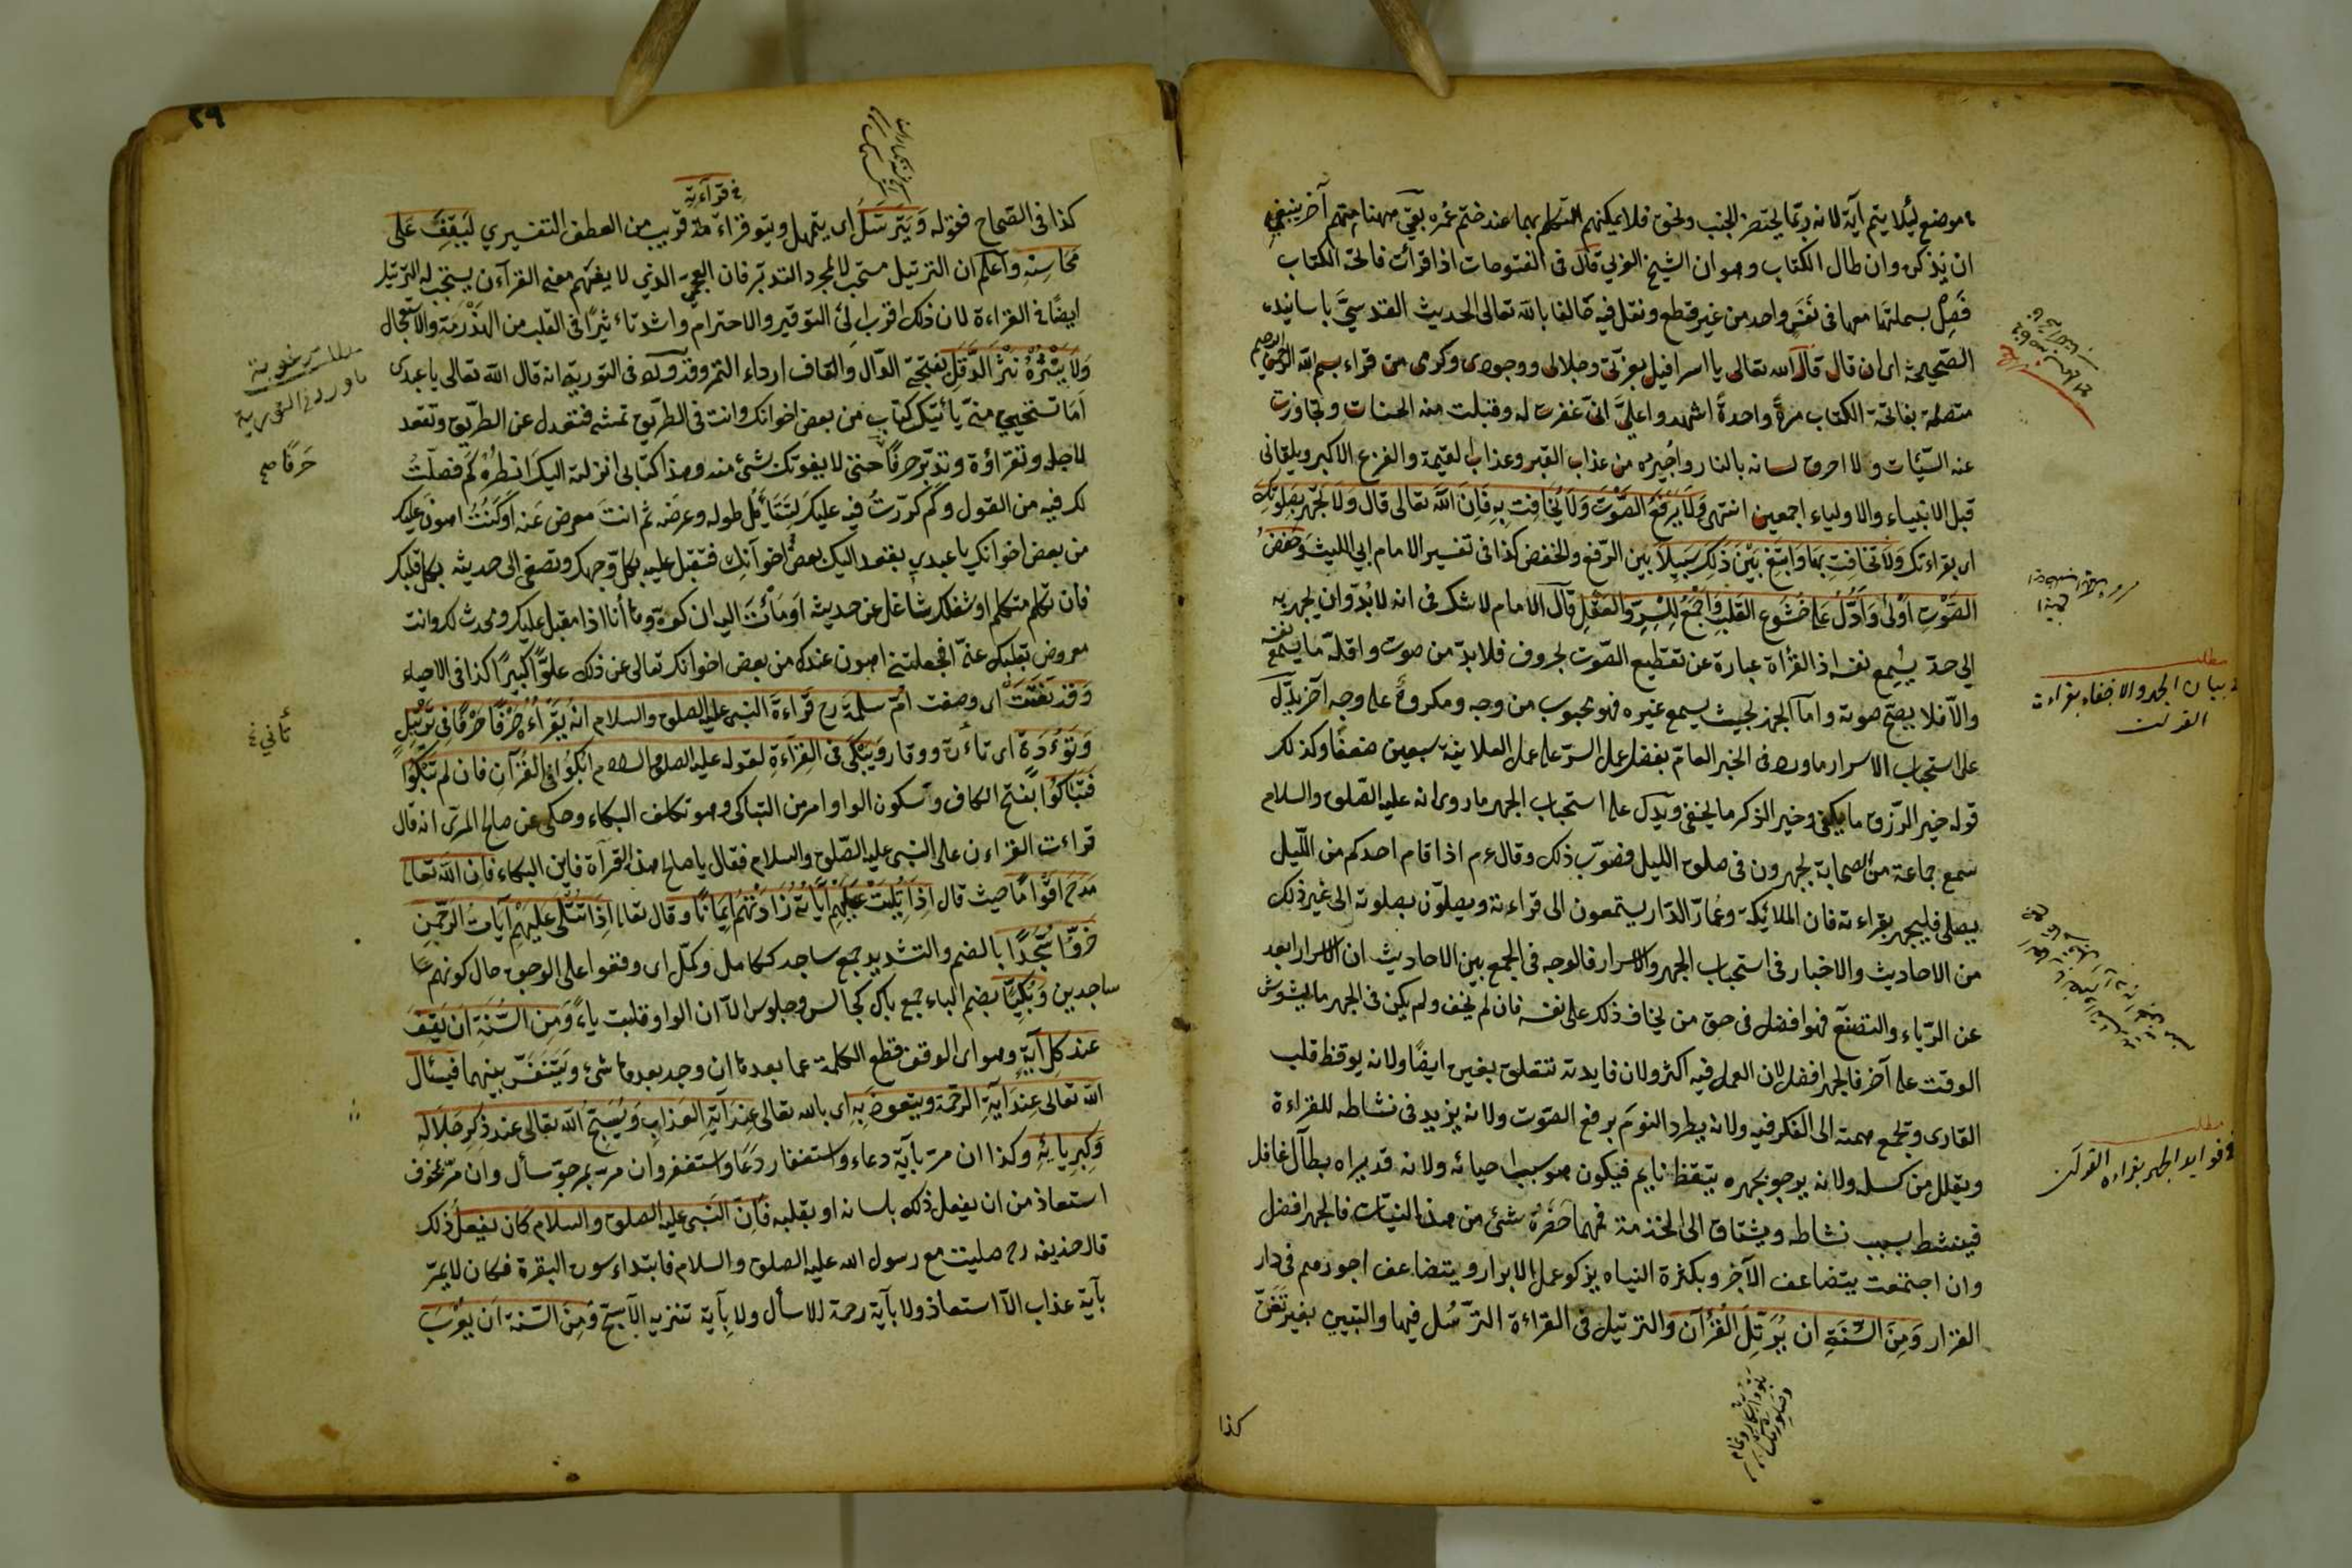 موضع لئلا يتم آية لانه ربما يحتضر الجنب ولحق فلا يمكنهم التكلم بها عند ختم عمره بقي ههنا مهم آخر ينبغي
ان يذكره وان طال الكتاب وهو ان الشيخ العربي قال فى الفتوحات اذا قرأت فاتحة الكتاب
فصل بسملتها معها فى نفس واحد من غير قطع ونقل فيه حالفا بالله تعالى الحديث القدسي باسانيده
الصحيحة ان قال قال الله تعالى يا اسرافيل بعزتى وجلالى ووجودى وكرمى من قراء بسم الله الرحمن الرحيم
متصلة بفاتحة الكتاب مرة واحدة اشهدوا على انى غفرت له وقبلت منه الحسنات وتجاوزت
عنه السيئات ولا احرق لسانه بالنار واجيره من عذاب القبر وعذاب القيمة والفزع الاكبر ويلقانى
قبل الانبياء والاولياء اجمعين انتهى ولا يرفع الصوت ولا يخافت به فان الله تعالى قال ولا تجهر بصلوتك
اى بقراءتك ولا تخافت بها وابتغ بين ذلك سبيلا بين الرفع والخفض كذا فى تفسير الامام ابي الليث وخفض
الصوت اولى وادل على خشوع القلب واجمع للسر والعقل قال الامام لا شك فى انه لا بد وان يجهر به
الى حد يسمع نفسه اذ القرأة عبارة عن تقطيع الصوت بحروف فلا بد من صوت واقله ما يسمع نفسه
والا فلا يصح صوته واما الجهر بحيث يسمع غيره فهو محبوب من وجه ومكروه على وجه آخر يدل
على استحباب الاسرار ما ورد فى الخبر العام يفضل عمل السر على عمل العلانية سبعين ضعفا وكذلك
قوله خير الرزق ما يكفى وخير الذكر ما يخفى ويدل على استحباب الجهر ما روى انه عليه الصلوة والسلام
سمع جماعة من الصحابة يجهرون فى صلوة الليل فصوب ذلك وقال عم اذا قام احدكم من الليل
يصلى فليجهر بقراءته فان الملائكة وعمار الدار يستمعون الى قراءته ويصلون بصلوته الى غير ذلك
من الاحاديث والاخبار فى استحباب الجهر والاسرار فالوجه فى الجمع بين الاحاديث ان الاسرار ابعد
عن الرياء والتصنع فهو افضل فى حق من يخاف ذلك على نفسه فان لم يخف ولم يكن فى الجهر ما يشوش
الوقت على آخر فالجهر افضل لان العمل فيه اكثر ولان فايدته تتعلق بغيره ايضا ولانه يوقظ قلب
القارى وتجمع همته الى الفكر فيه ولانه يطرد النوم برفع الصوت ولانه يزيد فى نشاطه للقراءة
ويقلل من كسله ولانه يرجو بجهره تيقظ نايم فيكون هو سبب احيائه ولانه قد يراه بطال غافل
فينشط بسبب نشاطه ويشتاق الى الخدمة فمهما حضره شئ من هذه النيات فالجهر افضل
وان اجتمعت يتضاعف الآجر وبكثرة النياه يزكو عمل الابرار ويتضاعف اجورهم فى دار
القرار ومن السنة ان يرتل القرآن والترتيل فى القراءة الترسل فيها والتبيين بغير تغن
كذا
مطلب
فى بيان الجهر والاخفاء بقراءت
القرآن
مطلب
فى فوايد الجهر بقراءه القرآن
٢٩
فى قرآءته
كذا فى الصحاح فقوله ويترسل اى يتمهل ويتوقر اءة قريب من العطف التفسيري ليقف على
محاسنه واعلم ان الترتيل مستحب لا لمجرد التدبر فان العجمي الذي لا يفهم معنى القرآءن يستحب له الترتيل
ايضا فى القراءة لان ذلك اقرب الى التوقير والاحترام واشد تاءثيرا فى القلب من الهذرمة والاستعجال
ولا ينثره نثر الدقل بفتحتى الدال والقاف ارداء التمر وقد ورد فى التورية انه قال الله تعالى يا عبدى
اما تستحيي منى يأتيك كتاب من بعض اخوانك وانت فى الطريق تمشى فتعدل عن الطريق وتقعد
لاجله وتقراؤه وتدبره حرفا حتى لا يفوتك شئ منه وهذا كتابى انزلته اليك انظر كم فصلت
لك فيه من القول وكم كررت فيه عليك لتتأمل طوله وعرضه ثم انت معرض عنه او كنت اهون عليك
من بعض اخوانك يا عبدي يقعد اليك بعض اخوآنك فتقبل عليه بكل وجهك وتصغى الى حديثه بكل قلبك
فان تكلم متكلم او شغلك شاغل عن حديثه اومأت اليه ان كف وها أنا اذا مقبل عليك ومحدث لك وانت
معرض بقلبك عنى افجعلتنى اهون عندك من بعض اخوانك تعالى عن ذلك علوا كبيرا كذا فى الاحياء
وقد نعتت اى وصفت ام سلمة رح قراءة النبى عليه الصلوة والسلام انه يقراؤه حرفا حرفا فى ترتيل
وتؤدة اى تاءن ووقار ويبكى فى القرآءة لقوله عليه الصلوة والسلام ابكوا فى القرآن فان لم تبكوا
فتباكوا بفتح الكاف وسكون الواو امر من التباكى وهو تكلف البكاء وحكى عن صالح المرى انه قال
قراءت القراءن على النبى عليه الصلوة والسلام فقال يا صالح هذه القرآة فاين البكاء فان الله تعالى
مدح اقواما حيث قال اذا تليت عليهم آياته زادتهم ايمانا وقال تعالى اذا تتلى عليهم آيات الرحمن
خروا سجدا بالضم والتشديد جمع ساجد ككامل وكمل اى وقعوا على الوجوه حال كونهم
ساجدين وبكيا بضم الباء جمع باك كجالس وجلوس الا ان الواو قلبت ياء ومن السنة ان يقف
عند كل آية وهو اى الوقف قطع الكلمة عما بعدها ان وجد بعدها شئ ويتنفس بينهما فيسئال
الله تعالى عند آية الرحمة ويتعوض به اى بالله تعالى عند آية العذاب ويسبح الله تعالى عند ذكر جلاله
وكبريائه وكذا ان مر بآية دعاء واستغفار دعا واستغفر وان مر بمرجو سأل وان مر بمخوف
استعاذ من ان يفعل ذلك بلسانه او بقلبه فان النبى عليه الصلوة والسلام كان يفعل ذلك
قال حذيفه رح صليت مع رسول الله عليه الصلوة والسلام فابتداء سورة البقرة فكان لا يمر
بآية عذاب الا استعاذ ولا بآية رحمة الا سأل ولا بآية تنزيه الا سبح ومن السنة ان يعرب
حرفا صح
تأني